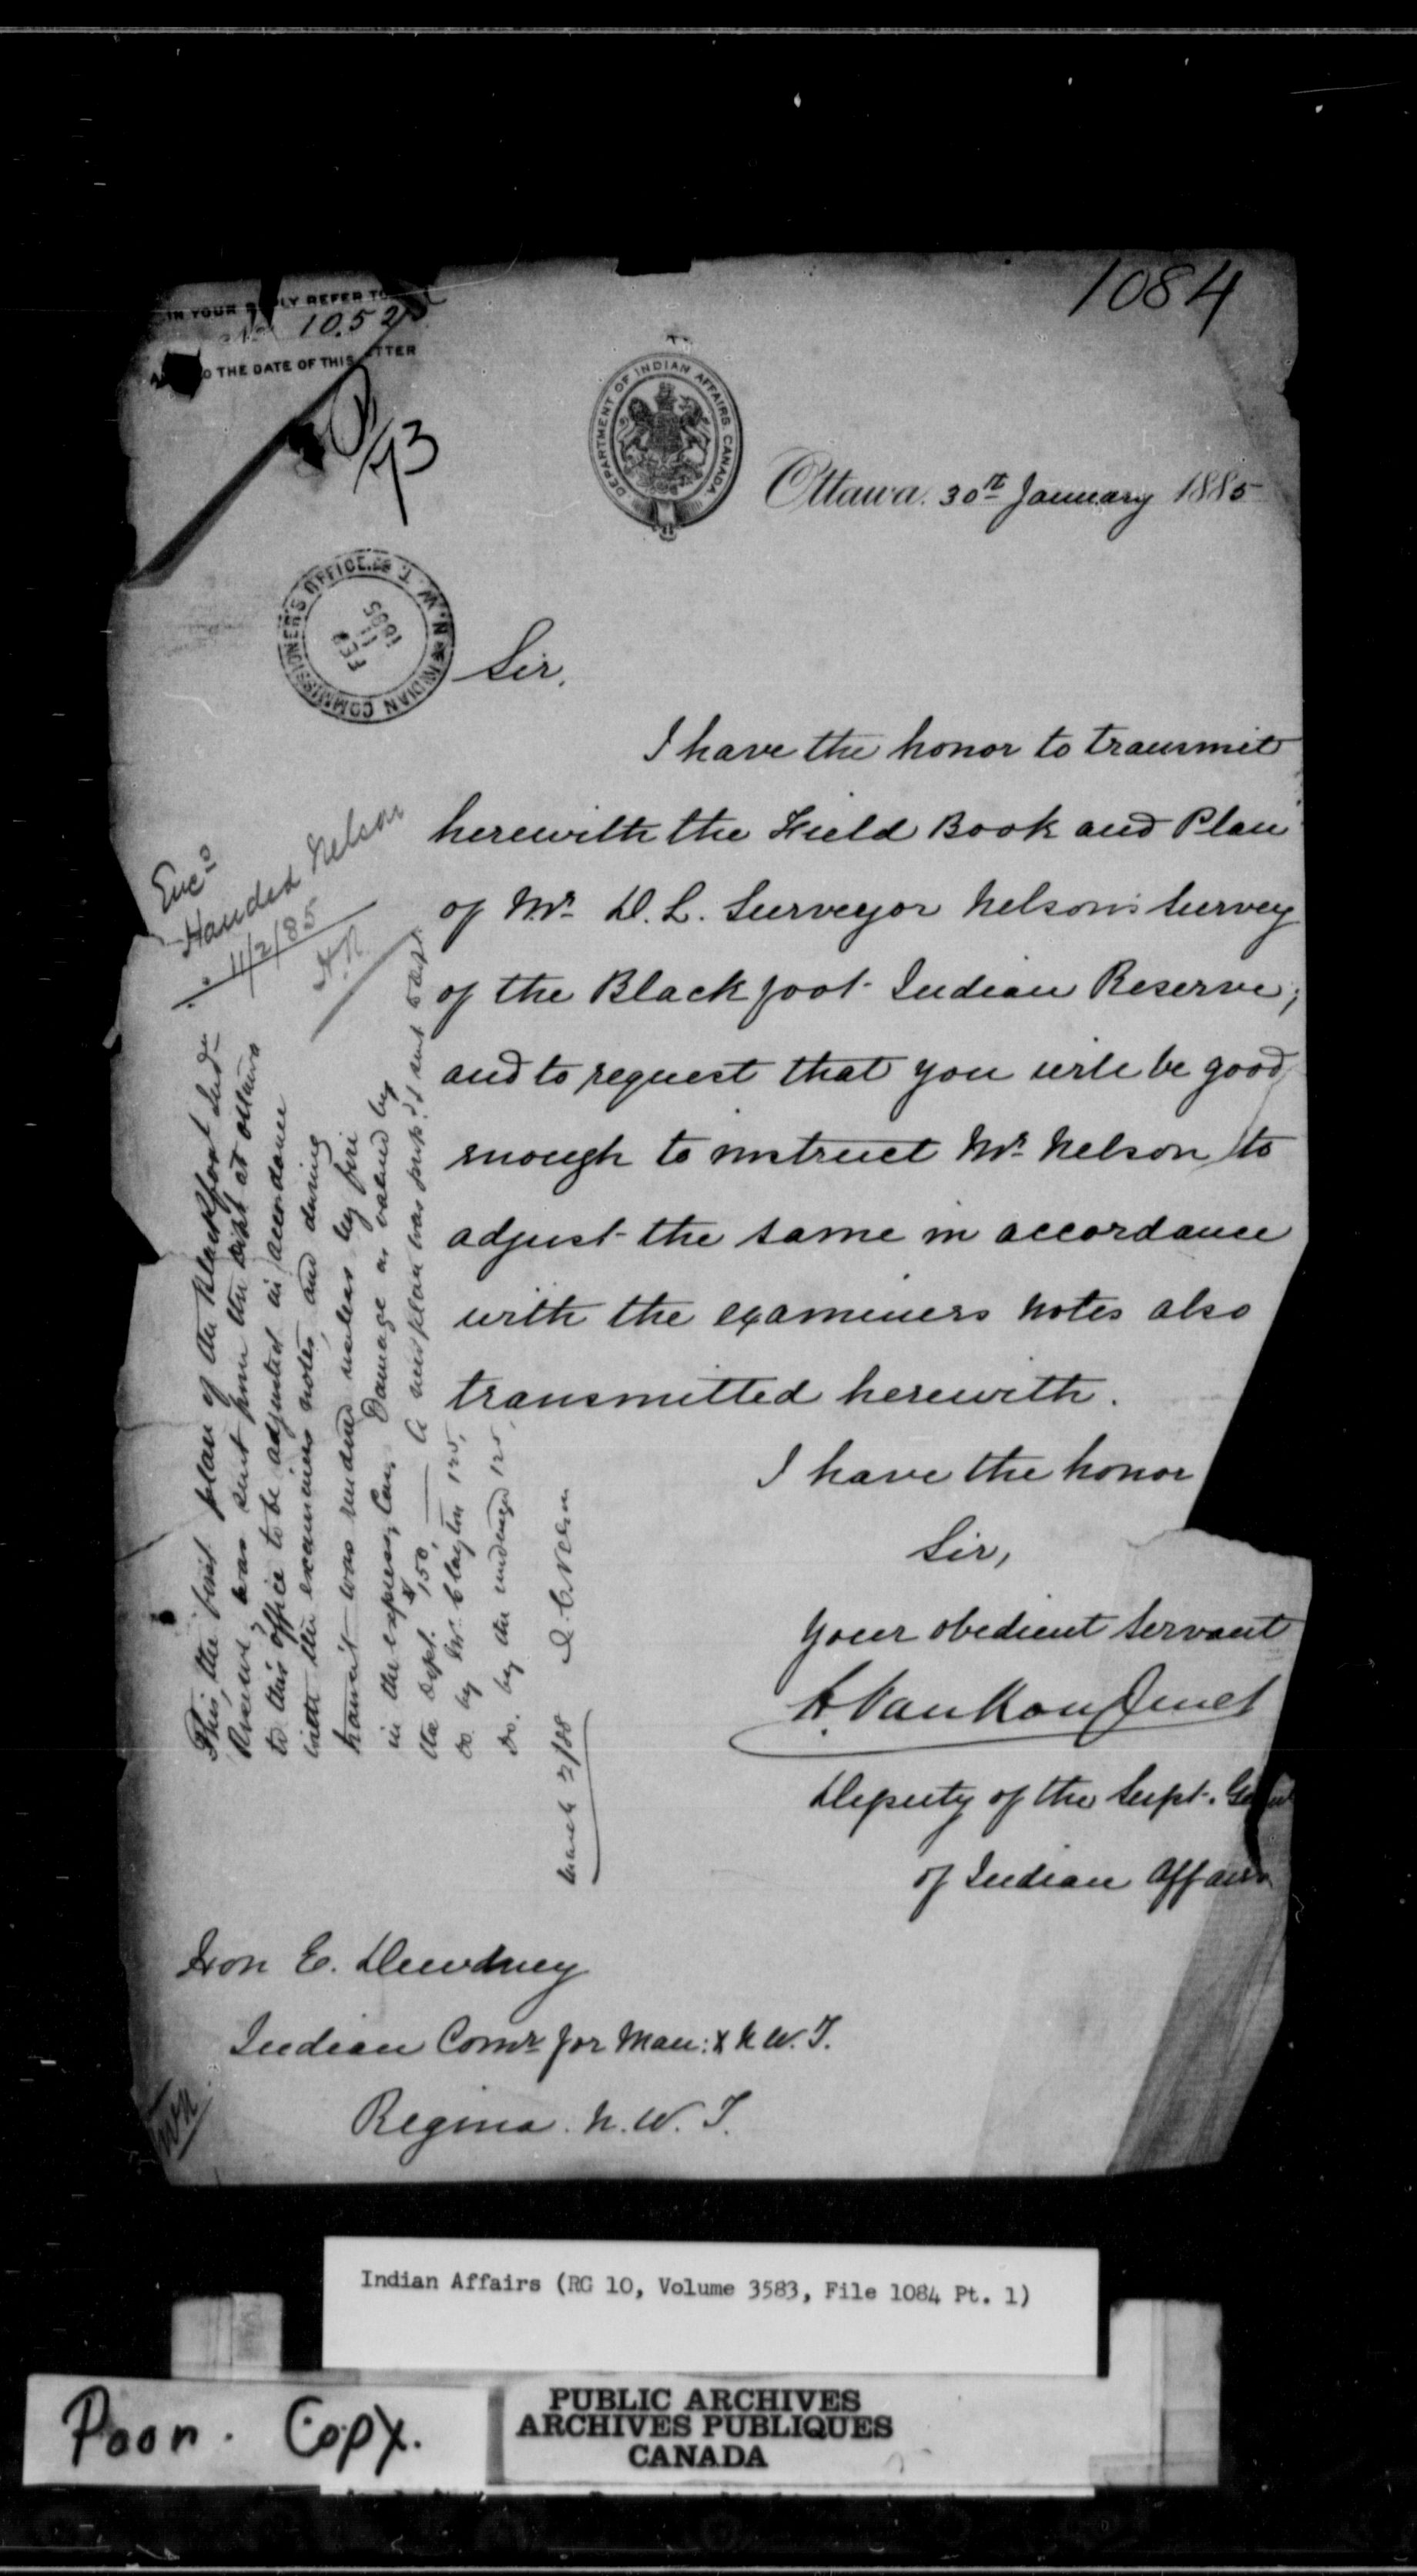 1084
IN YOUR REPLY REFER TO
No. 10.52
AND TO THE DATE OF THIS LETTER
73
DEPARTMENT OF INDIAN AFFAIRS. CANADA
Ottawa. 30th January 1885
INDIAN COMMISSIONER'S OFFICE. N.W.T.
FEB
11
1885
Sir,
I have the honor to transmit
herewith the Field Book and Plan
of Mr. D. L. Surveyor Nelson's survey
of the Blackfoot Indian Reserve;
and to request that you will be good
enough to instruct Mr. Nelson to
adjust the same in accordance
with the examiners notes also
transmitted herewith.
I have the honor
Sir,
your obedient servant
L. VanKoughnet
Deputy of the Supt. Genl
of Indian Affairs
Hon E. Dewdney
Indian Comr for Man: & N.W.T.
Regina. N.W.T.
Encs
Handed Nelson
11/2/85
This, the first plan of the Blackfoot Indn
Reserve, was sent from the Dept at Ottawa
to this office to be adjusted in accordance
with the examiners notes, and during
transit was rendered useless by fire
in the express car. Damage as valued by
the Dept. $150, — A new plan was sent Dept.
Do. by Mr. Clayton 125,
Do. by the undersigned 125,
March 2/88 J. C. Nelson
Indian Affairs (RG 10, Volume 3583, File 1084 Pt. 1)
Poor. Copy.
PUBLIC ARCHIVES
ARCHIVES PUBLIQUES
CANADA